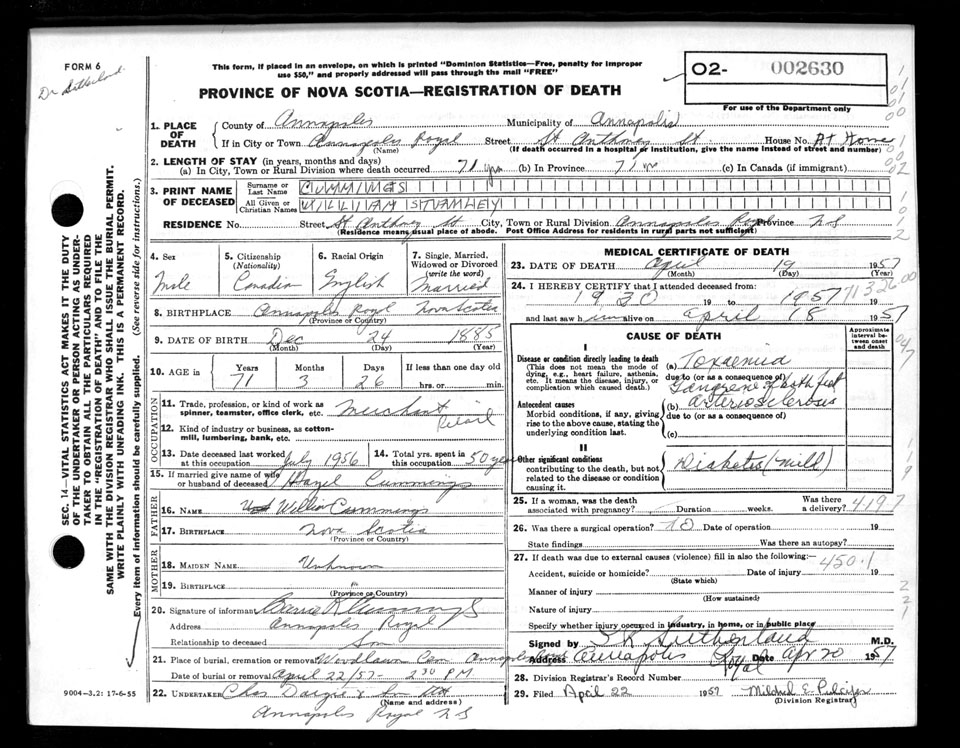 FORM 6
Dr Sutherland
This form, if placed in an envelope, on which is printed "Dominion Statistics—Free, penalty for improper
use $50," and properly addressed will pass through the mail "FREE"
PROVINCE OF NOVA SCOTIA—REGISTRATION OF DEATH
O2- 002630
For use of the Department only
1. PLACE OF DEATH
County of Annapolis Municipality of Annapolis
If in City or Town Annapolis Royal Street St Anthony St House No. At Home
(Name) (If death occurred in a hospital or institution, give the name instead of street and number)
2. LENGTH OF STAY (in years, months and days)
(a) In City, Town or Rural Division where death occurred 71 yrs (b) In Province 71 yr (c) In Canada (if immigrant)
3. PRINT NAME OF DECEASED
Surname or Last Name CUMMINGS
All Given or Christian Names WILLIAM STUMLEY
RESIDENCE No. Street St Anthony St City, Town or Rural Division Annapolis Royal Province NS
(Residence means usual place of abode. Post Office Address for residents in rural parts not sufficient)
4. Sex
Male
5. Citizenship (Nationality)
Canadian
6. Racial Origin
English
7. Single, Married, Widowed or Divorced (write the word)
Married
8. BIRTHPLACE Annapolis Royal Nova Scotia
(Province or Country)
9. DATE OF BIRTH Dec 24 1885
(Month) (Day) (Year)
10. AGE in Years Months Days If less than one day old
71 3 26 hrs. or min.
OCCUPATION
11. Trade, profession, or kind of work as spinner, teamster, office clerk, etc. Merchant
12. Kind of industry or business, as cotton-mill, lumbering, bank, etc. Retail
13. Date deceased last worked at this occupation July 1956
14. Total yrs. spent in this occupation 50 years
15. If married give name of wife or husband of deceased Hazel Cummings
FATHER
16. NAME William Cummings
17. BIRTHPLACE Nova Scotia
(Province or Country)
MOTHER
18. MAIDEN NAME Unknown
19. BIRTHPLACE "
(Province or Country)
20. Signature of informant Cummings
Address Annapolis Royal
Relationship to deceased Son
21. Place of burial, cremation or removal Woodlawn Cem Annapolis
Date of burial or removal April 22/57- 2 30 PM
22. UNDERTAKER Chas Dargie & Son
(Name and address)
Annapolis Royal NS
9004-3.2: 17-6-55
MEDICAL CERTIFICATE OF DEATH
23. DATE OF DEATH April 19 1957
(Month) (Day) (Year)
24. I HEREBY CERTIFY that I attended deceased from:
1950 19 to 1957 19
and last saw him alive on April 18 1957
CAUSE OF DEATH
Approximate interval between onset and death
I
Disease or condition directly leading to death
(This does not mean the mode of dying, e.g., heart failure, asthenia, etc. It means the disease, injury, or complication which caused death.)
(a) Toxaemia
due to (or as a consequence of)
Gangrene of both feet
Antecedent causes
Morbid conditions, if any, giving rise to the above cause, stating the underlying condition last.
(b) arteriosclerosis
due to (or as a consequence of)
(c)
II
Other significant conditions
contributing to the death, but not related to the disease or condition causing it.
Diabetes (mild)
25. If a woman, was the death associated with pregnancy? Duration weeks. Was there a delivery?
4197
26. Was there a surgical operation? no Date of operation 19
State findings Was there an autopsy?
27. If death was due to external causes (violence) fill in also the following:—
450.1
Accident, suicide or homicide? Date of injury 19
(State which)
Manner of injury
(How sustained)
Nature of injury
Specify whether injury occurred in industry, in home, or in public place
Signed by S K Sutherland M.D.
Address Annapolis Royal Date Apr 20 1957
28. Division Registrar's Record Number
29. Filed April 22 1957
(Division Registrar)
SEC. 14—VITAL STATISTICS ACT MAKES IT THE DUTY
OF THE UNDERTAKER OR PERSON ACTING AS UNDER-
TAKER TO OBTAIN ALL THE PARTICULARS REQUIRED
IN THE "REGISTRATION OF DEATH" AND TO FILE THE
SAME WITH THE DIVISION REGISTRAR WHO SHALL ISSUE THE BURIAL PERMIT.
WRITE PLAINLY WITH UNFADING INK. THIS IS A PERMANENT RECORD.
Every item of information should be carefully supplied. (See reverse side for instructions.)